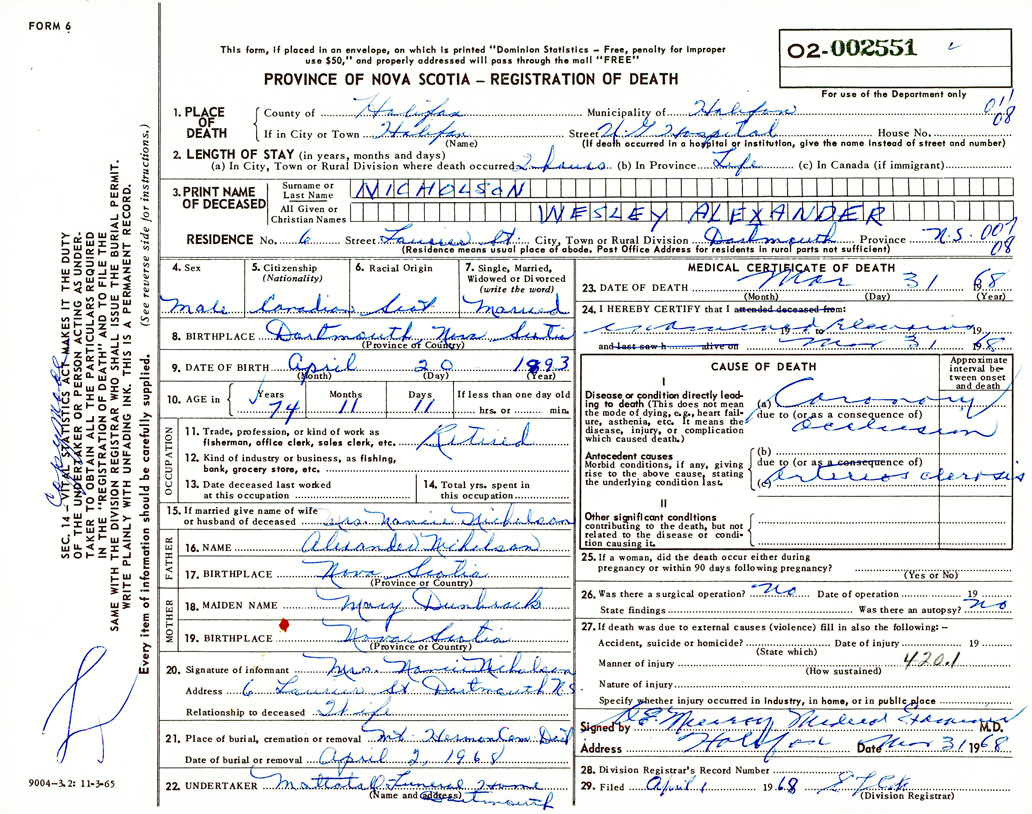 FORM 6
02-002551
This form, if placed in an envelope, on which is printed "Dominion Statistics – Free, penalty for improper
use $50," and properly addressed will pass through the mail "FREE"
PROVINCE OF NOVA SCOTIA – REGISTRATION OF DEATH
For use of the Department only
1. PLACE OF DEATH { County of Halifax Municipality of Halifax 011
If in City or Town Halifax (Name) Street V. G. Hospital House No. 08
(If death occurred in a hospital or institution, give the name instead of street and number)
2. LENGTH OF STAY (in years, months and days)
(a) In City, Town or Rural Division where death occurred 2 hours (b) In Province Life (c) In Canada (if immigrant)
3. PRINT NAME OF DECEASED { Surname or Last Name NICHOLSON
All Given or Christian Names WESLEY ALEXANDER
RESIDENCE No. 6 Street Laurier St. City, Town or Rural Division Dartmouth Province N.S. 007
(Residence means usual place of abode. Post Office Address for residents in rural parts not sufficient) 08
4. Sex
Male
5. Citizenship
(Nationality)
Canadian
6. Racial Origin
Scot
7. Single, Married,
Widowed or Divorced
(write the word)
Married
8. BIRTHPLACE Dartmouth Nova Scotia
(Province or Country)
9. DATE OF BIRTH April 20 1893
(Month) (Day) (Year)
10. AGE in { Years Months Days If less than one day old
74 11 11 hrs. or min.
OCCUPATION
11. Trade, profession, or kind of work as
fisherman, office clerk, sales clerk, etc. Retired
12. Kind of industry or business, as fishing,
bank, grocery store, etc.
13. Date deceased last worked
at this occupation
14. Total yrs. spent in
this occupation
15. If married give name of wife
or husband of deceased Mrs. Nancie Nicholson
FATHER
16. NAME Alexander Nicholson
17. BIRTHPLACE Nova Scotia
(Province or Country)
MOTHER
18. MAIDEN NAME Mary Dunbrack
19. BIRTHPLACE Nova Scotia
(Province or Country)
20. Signature of informant Mrs. Nancie Nicholson
Address 6 Laurier St. Dartmouth N.S.
Relationship to deceased Wife
21. Place of burial, cremation or removal Mt. Hermon Cem Dart
Date of burial or removal April 2, 1968
22. UNDERTAKER Mattatall Funeral Home
(Name and address) Dartmouth
MEDICAL CERTIFICATE OF DEATH
23. DATE OF DEATH Mar 31 1968
(Month) (Day) (Year)
24. I HEREBY CERTIFY that I attended deceased from:
examined 19 to 19
and last saw h alive on Mar 31 1968
CAUSE OF DEATH
Approximate
interval be-
tween onset
and death
I
Disease or condition directly lead-
ing to death (This does not mean
the mode of dying, e.g., heart fail-
ure, asthenia, etc. It means the
disease, injury, or complication
which caused death.)
(a) Coronary
due to (or as a consequence of)
Occlusion
Antecedent causes
Morbid conditions, if any, giving
rise to the above cause, stating
the underlying condition last.
(b)
due to (or as a consequence of)
(c) Arteriosclerosis
II
Other significant conditions
contributing to the death, but not
related to the disease or condi-
tion causing it.
25. If a woman, did the death occur either during
pregnancy or within 90 days following pregnancy?
(Yes or No)
26. Was there a surgical operation? No Date of operation 19
State findings Was there an autopsy? no
27. If death was due to external causes (violence) fill in also the following: –
Accident, suicide or homicide? Date of injury 19
(State which)
Manner of injury 420.1
(How sustained)
Nature of injury
Specify whether injury occurred in industry, in home, or in public place
Signed by Medical Examiner M.D.
Address Halifax Date Mar 31 1968
28. Division Registrar's Record Number
29. Filed April 1 1968
(Division Registrar)
SEC. 14 – VITAL STATISTICS ACT MAKES IT THE DUTY
OF THE UNDERTAKER OR PERSON ACTING AS UNDER-
TAKER TO OBTAIN ALL THE PARTICULARS REQUIRED
IN THE "REGISTRATION OF DEATH" AND TO FILE THE
SAME WITH THE DIVISION REGISTRAR WHO SHALL ISSUE THE BURIAL PERMIT.
WRITE PLAINLY WITH UNFADING INK. THIS IS A PERMANENT RECORD.
Every item of information should be carefully supplied. (See reverse side for instructions.)
9004–3.2: 11-3-65